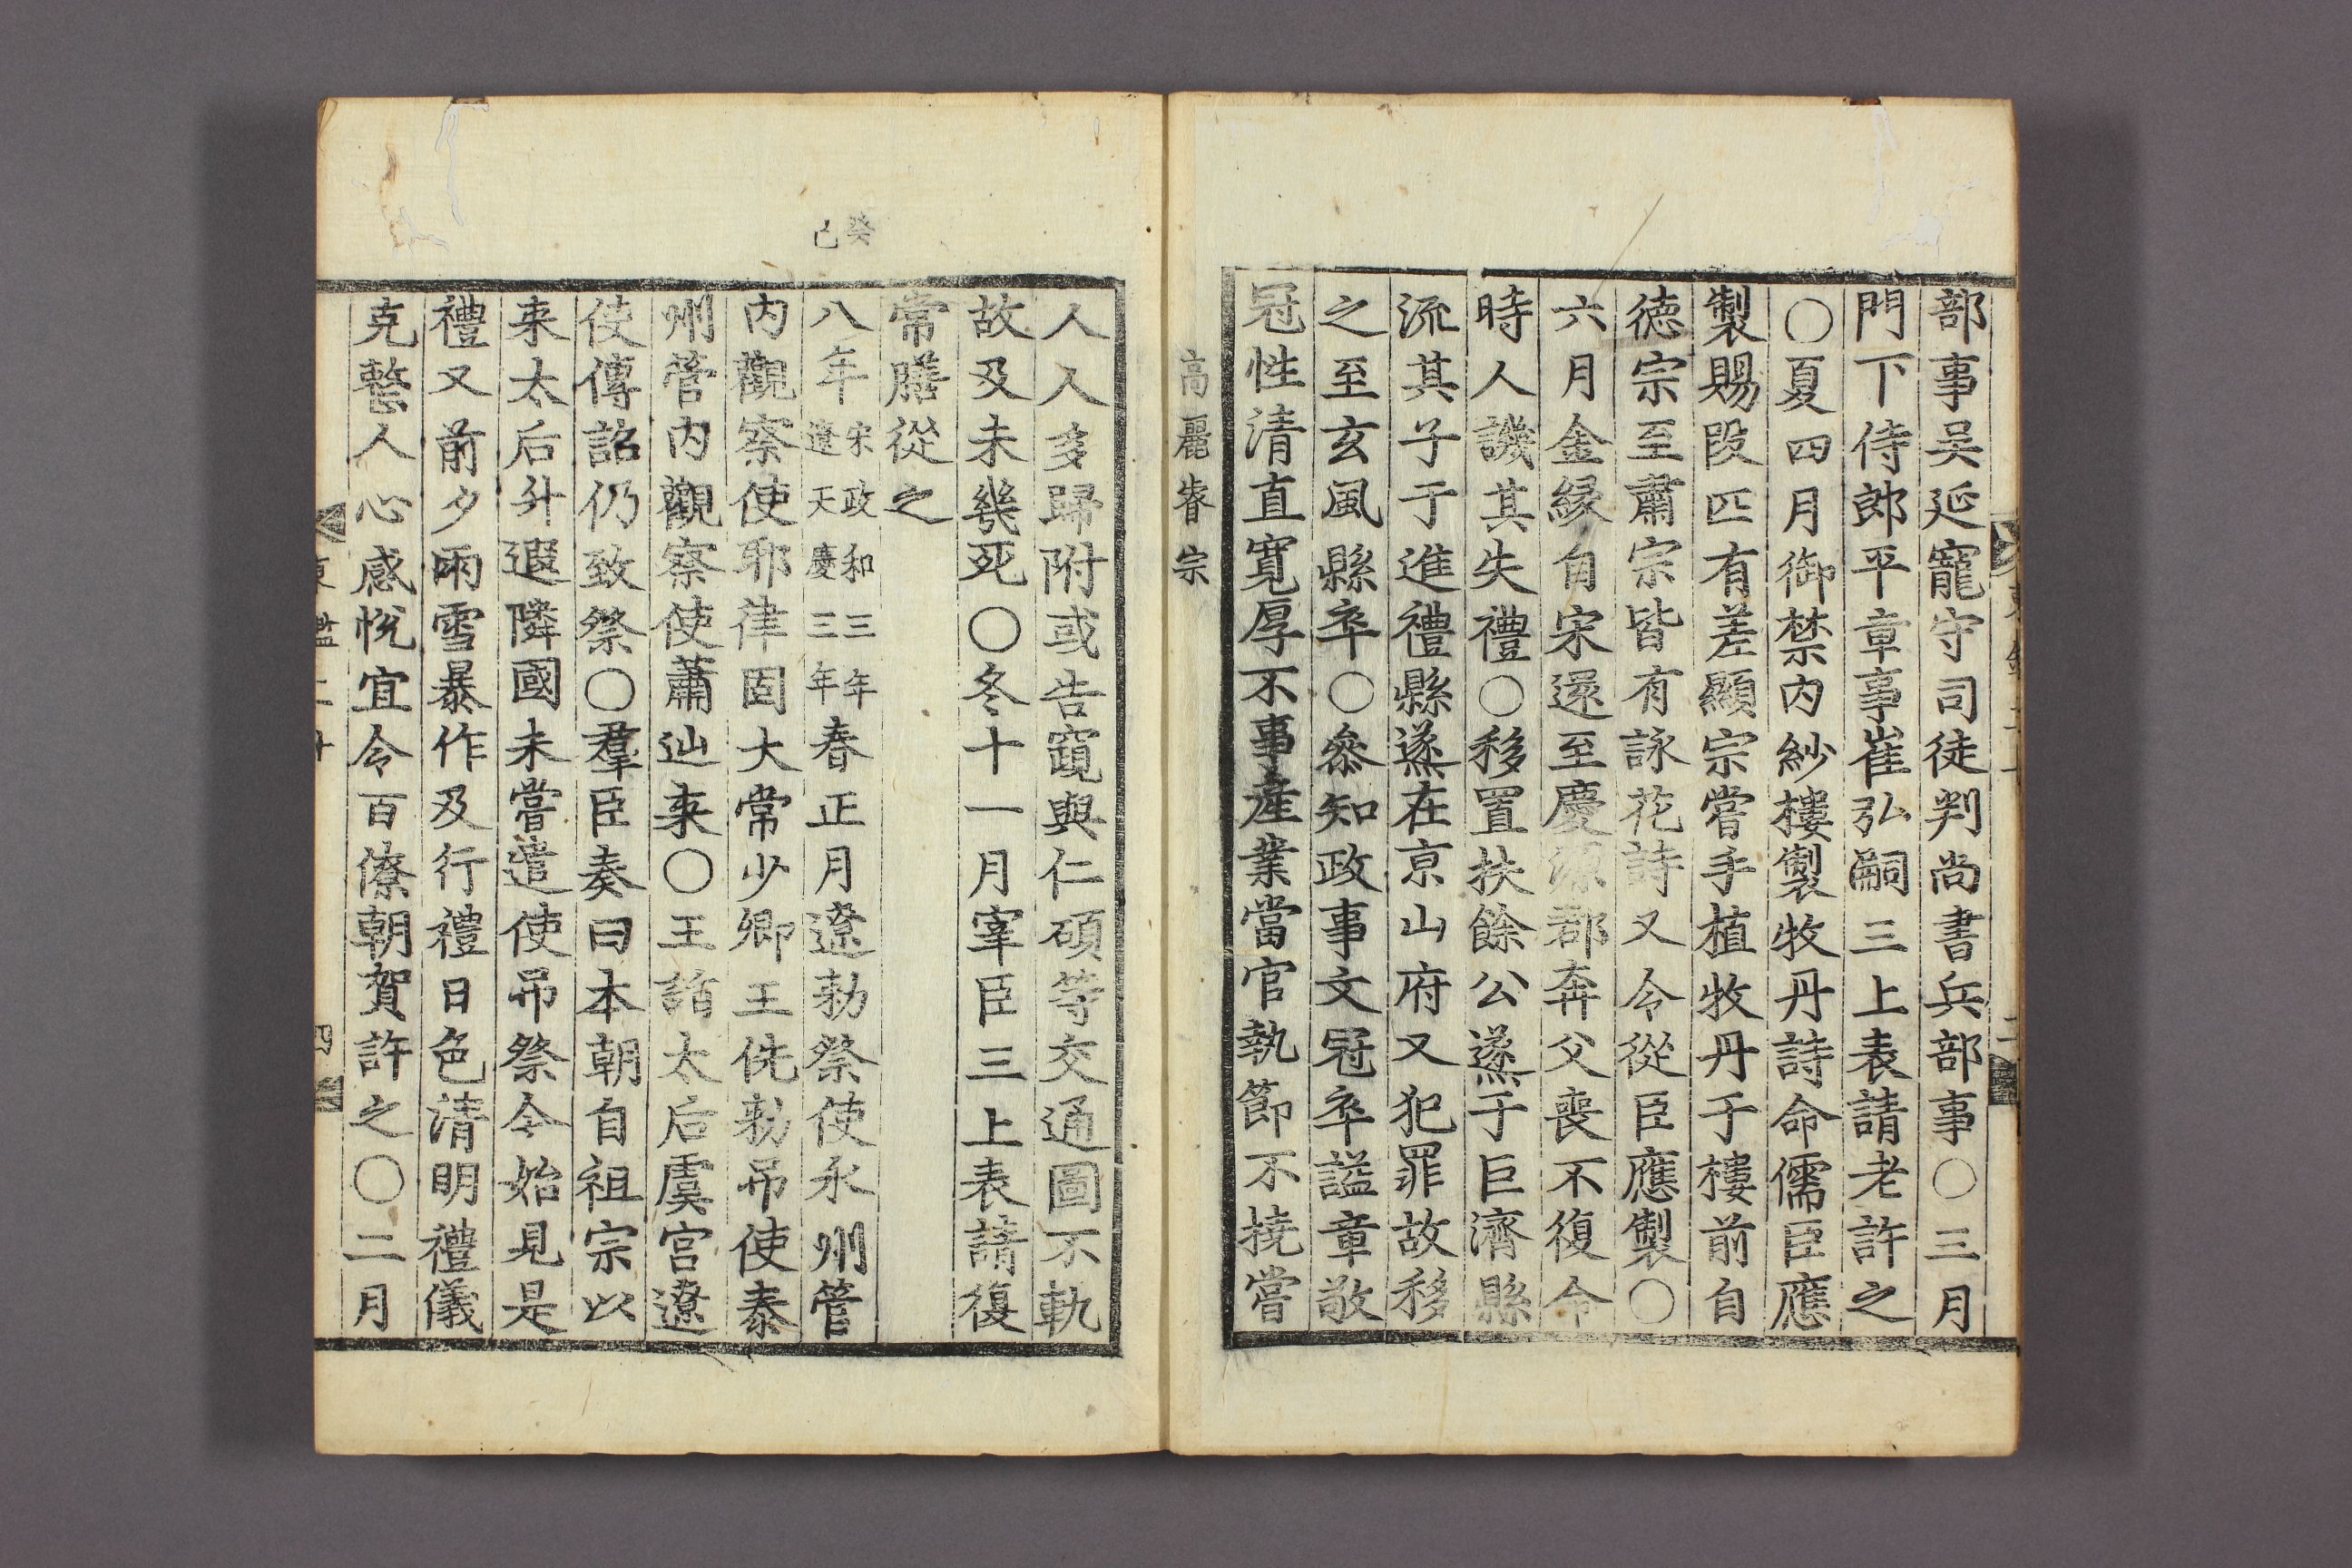 部事吴延寵守司徒判尚書兵部事○三月
門下侍郎平章事崔弘嗣三上表請老許之
○夏四月御禁内紗樓製牧丹詩命儒臣應
製賜段匹有差顯宗嘗手植牧丹于樓前自
徳宗至肅宗皆有詠花詩又令從臣應製○
六月金縁自宋還至慶源郡奔父喪不復命
時人譏其失禮○移置扶餘公㸂于巨濟縣
流其子于進禮縣㸂在京山府又犯罪故移
之至玄風縣卒○叅知政事文冠卒謚章敬
冠性清直寬厚不事産業當官執節不撓嘗
高麗睿宗
人人多歸附或告窺與仁碩等交通圖不軌
故及未幾死○冬十一月宰臣三上表請復
常膳從之
癸巳
八年宋政和三年遼天慶三年春正月遼勑祭使永州管
内觀察使耶律固大常少卿王侁勑吊使泰
州管内觀察使蕭辿来○王詣太后虞宮遼
使傳詔仍致祭○羣臣奏曰本朝自祖宗以
来太后升遐隣國未嘗遣使吊祭今始見是
禮又前夕雨雪暴作及行禮日色清明禮儀
克整人心感悅宜令百僚朝賀許之○二月